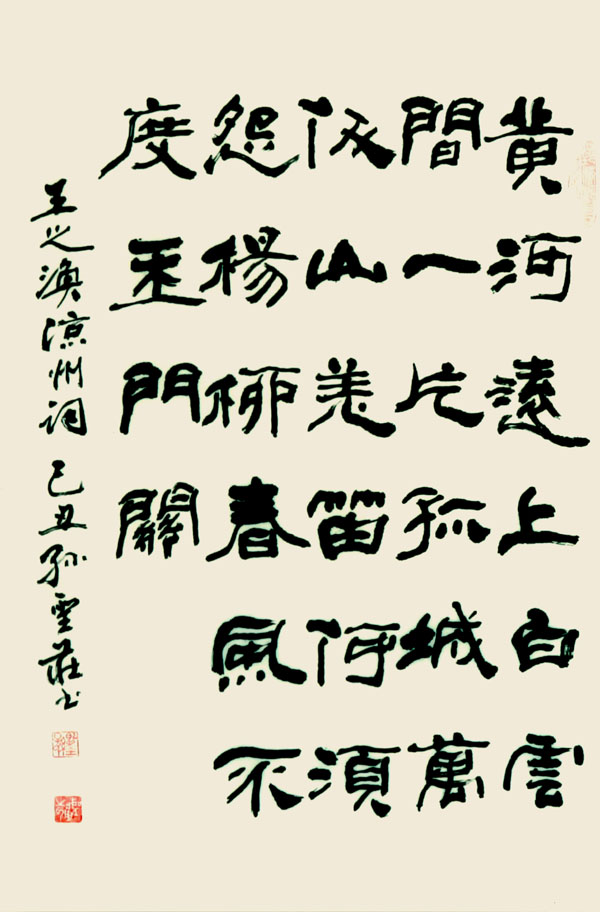 黄河遠上白雲
間一片孤城萬
仭山羌笛何須
怨楊柳春風不
度玉門關
王之渙涼州詞 己丑孙雲莊书